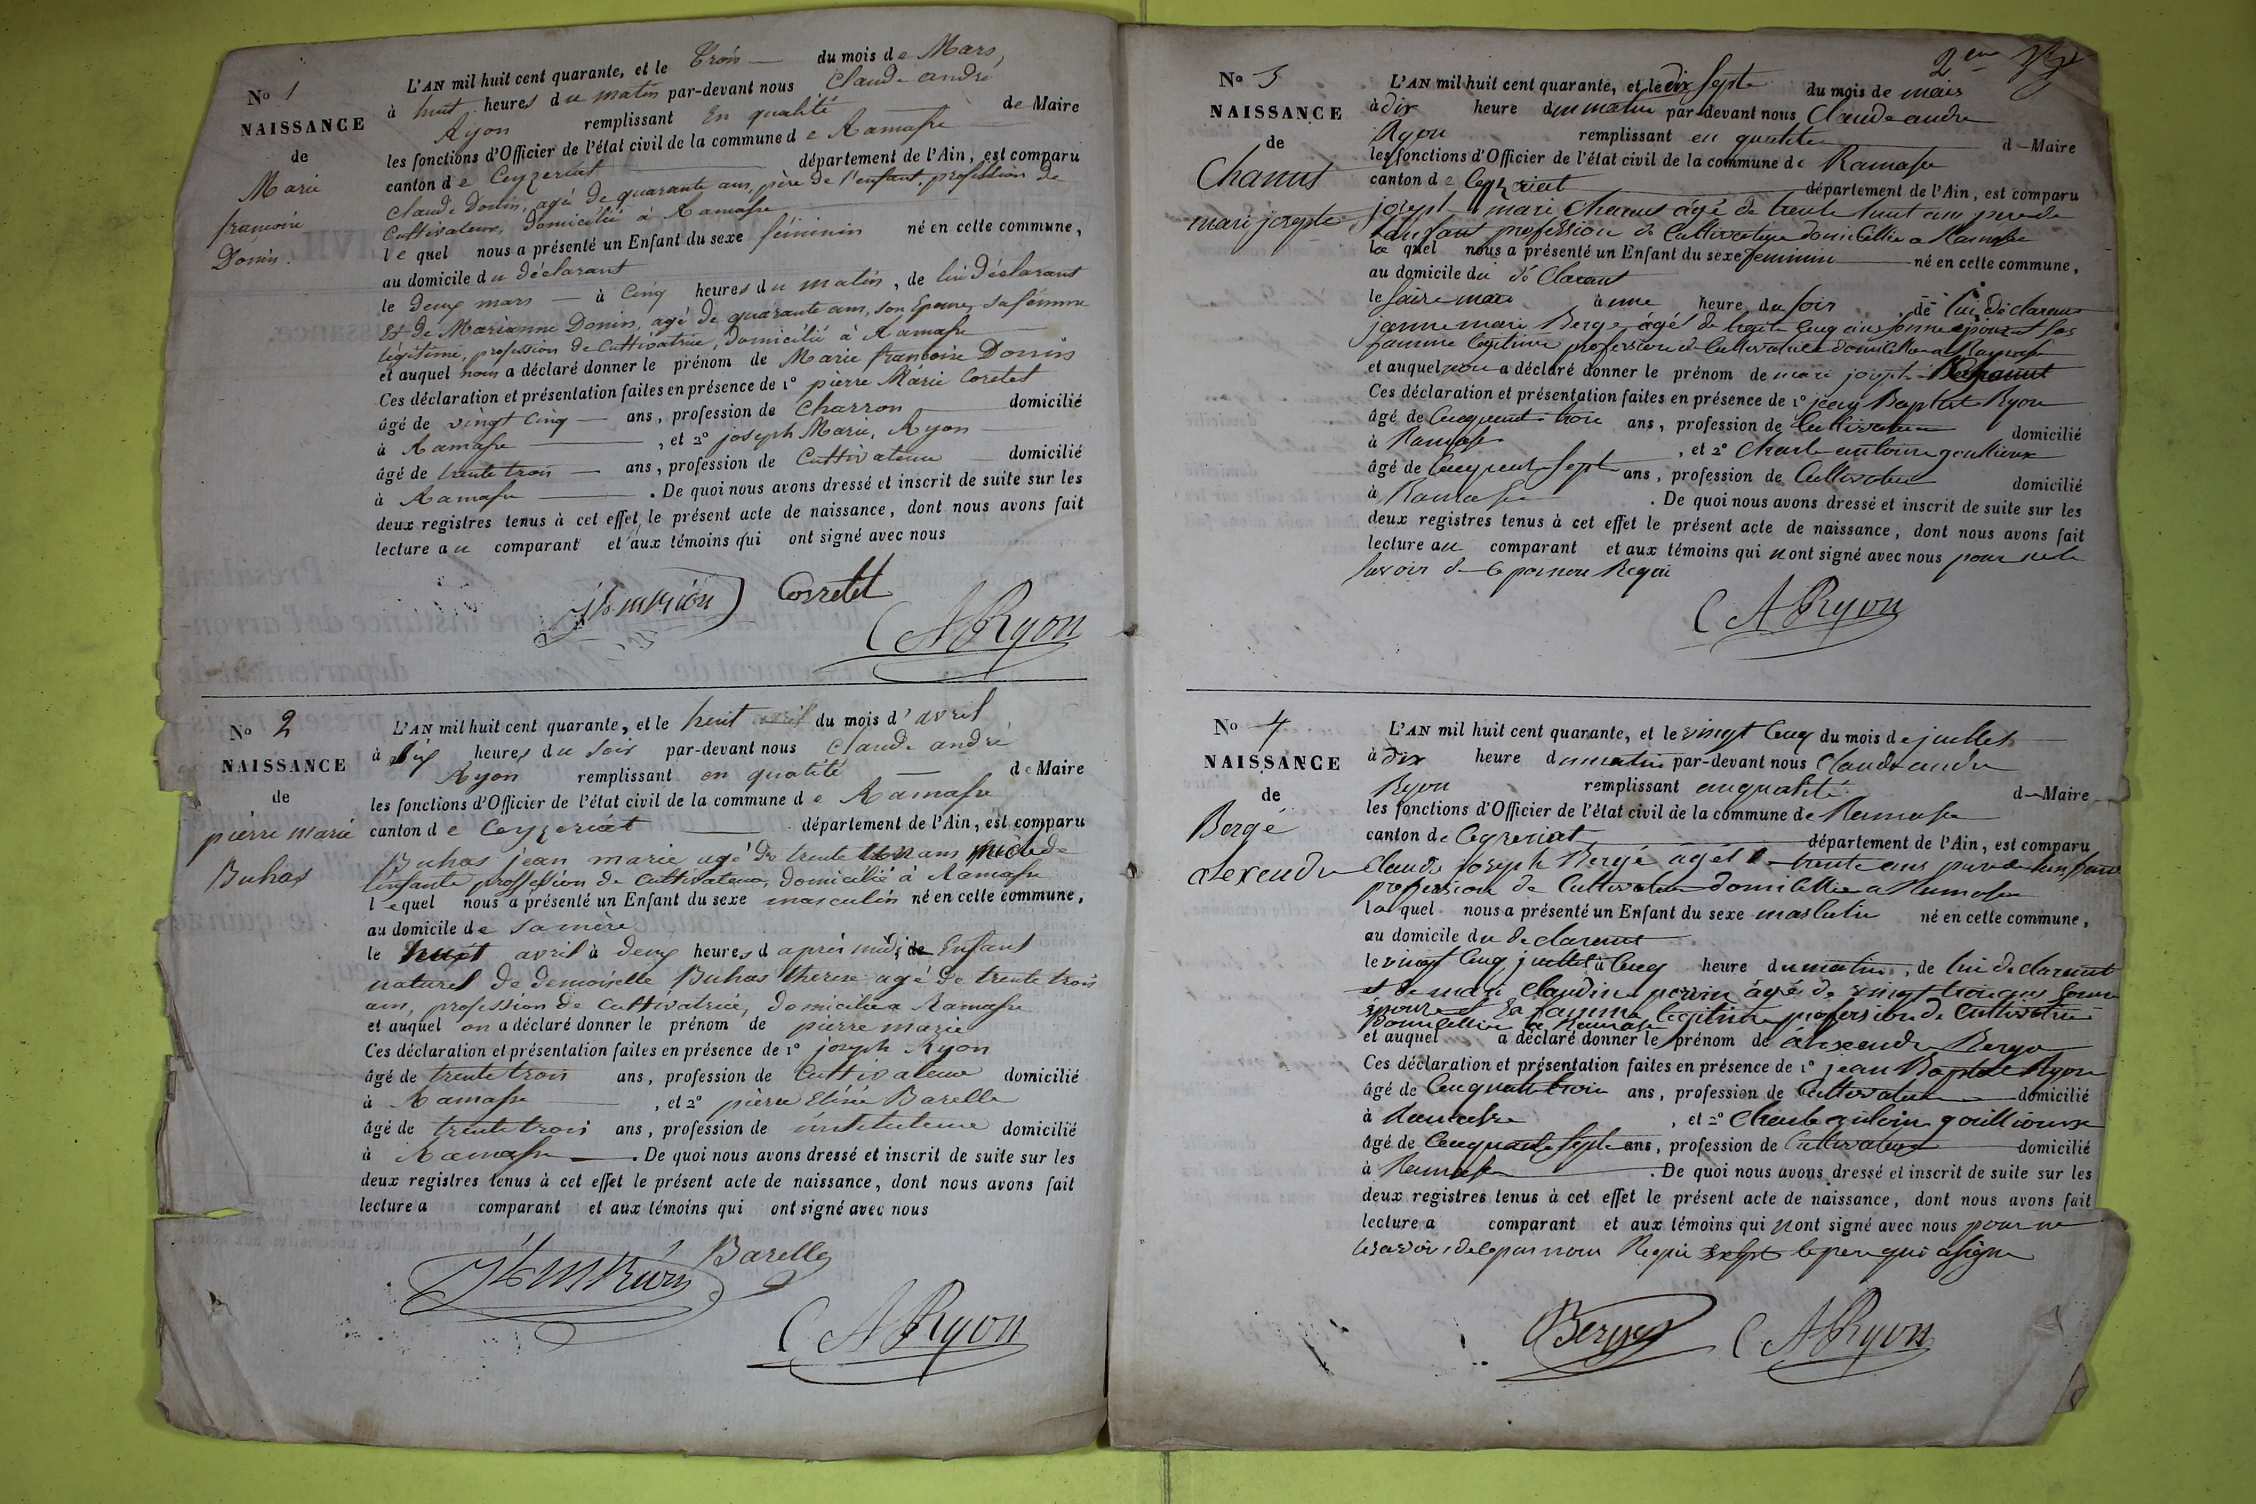 No 1
NAISSANCE
de
Marie
françoise
Donin.
L'AN mil huit cent quarante, et le trois du mois de Mars,
à huit heures du matin par-devant nous Claude andré
Ryon remplissant En qualité de Maire
les fonctions d'Officier de l'état civil de la commune de Ramasse
canton de Ceyzeriat département de l'Ain, est comparu
Claude Donin, agé de quarante ans, père de l'enfant, profession de
Cultivateur, domicilié à Ramasse
lequel nous a présenté un Enfant du sexe féminin né en cette commune,
au domicile du déclarant
le deux mars à cinq heures du matin, de lui déclarant
Et de Marianne Donin, agé de quarante ans, son Epouse, sa femme
légitime, profession de Cultivatrice, domicilié à Ramasse
et auquel nous a déclaré donner le prénom de Marie françoise Donin
Ces déclaration et présentation faites en présence de 1° pierre Marie Corretet
âgé de vingt cinq ans, profession de Charron domicilié
à Ramasse, et 2° joseph Marie, Ryon
âgé de trente trois ans, profession de Cultivateur domicilié
à Ramasse. De quoi nous avons dressé et inscrit de suite sur les
deux registres tenus à cet effet, le présent acte de naissance, dont nous avons fait
lecture au comparant et aux témoins qui ont signé avec nous
Corretet
C A Ryon
No 2
NAISSANCE
de
pierre marie
Buhas
L'AN mil huit cent quarante, et le huit avril du mois d'avril
à six heures du soir par-devant nous Claude andré
Ryon remplissant en qualité de Maire
les fonctions d'Officier de l'état civil de la commune de Ramasse
canton de Ceyzeriat département de l'Ain, est comparu
Buhas jean marie agé de trente ans de
l'enfant profession de Cultivateur, domicilié à Ramasse
lequel nous a présenté un Enfant du sexe masculin né en cette commune,
au domicile de sa mère
le huit avril à deux heures d après midi, de Enfant
naturel de demoiselle Buhas therese agé de trente trois
ans, profession de Cultivatrice, domiciliée a Ramasse
et auquel on a déclaré donner le prénom de pierre marie
Ces déclaration et présentation faites en présence de 1° joseph Ryon
âgé de trente trois ans, profession de Cultivateur domicilié
à Ramasse, et 2° pierre Barelle
âgé de trente trois ans, profession de instituteur domicilié
à Ramasse. De quoi nous avons dressé et inscrit de suite sur les
deux registres tenus à cet effet le présent acte de naissance, dont nous avons fait
lecture a comparant et aux témoins qui ont signé avec nous
Barelle
C A Ryon
2eme
No 3
NAISSANCE
de
Chanut
mari josepte
L'AN mil huit cent quarante, et le dix Sept du mois de mais
à dix heure du matin par-devant nous Claude andre
Ryon remplissant en qualite d Maire
les fonctions d'Officier de l'état civil de la commune de Ramasse
canton de Ceyzeriat département de l'Ain, est comparu
joseph mari Chanut âgé de trente huit ans pere de
lanfant profession de Cultivateur domicillie a Ramasse
le quel nous a présenté un Enfant du sexe feminin né en cette commune,
au domicile du dé Clarant
le à une heure du soir de lui dé clarant
janne mari Berge âgé de trante cinq ans
famme legitime profession de Cultivatrice domicillie a Ramasse
et auquel nou a déclaré donner le prénom de mari josept Chanut
Ces déclaration et présentation faites en présence de 1° jean Baptist Ryon
âgé de Cinquant trois ans, profession de Cultivateur domicilié
à Ramasse, et 2° Charle antoine
âgé de Cinquant Sept ans, profession de Cultivateur domicilié
à Ramasse. De quoi nous avons dressé et inscrit de suite sur les
deux registres tenus à cet effet le présent acte de naissance, dont nous avons fait
lecture au comparant et aux témoins qui nont signé avec nous pour ne le
savoir de par nou Requi
C A Ryon
No 4
NAISSANCE
de
Bergé
alexendre
L'AN mil huit cent quarante, et le vingt Cinq du mois de juillet
à dix heure du matin par-devant nous Claude andre
Ryon remplissant an qualité d Maire
les fonctions d'Officier de l'état civil de la commune de Ramasse
canton de Ceyzeriat département de l'Ain, est comparu
Claude joseph Bergé âgé de trente ans pere de lanfant
profession de Cultivateur domicillie a Ramasse
le quel nous a présenté un Enfant du sexe masculin né en cette commune,
au domicile du declarant
le vingt Cinq juillet à Cinq heure du matin, de lui declarant
et de mari Claudine perrin âgé de vingt trois ans
épouse et sa famme legitime profession de Cultivatrice
Domicillie a Ramasse
et auquel a déclaré donner le prénom de Berge
Ces déclaration et présentation faites en présence de 1° jean Baptist Ryon
âgé de Cinquant trois ans, profession de Cultivateur domicilié
à Ramasse, et 2° Charle
âgé de Cinquant Sept ans, profession de Cultivateur domicilié
à Ramasse. De quoi nous avons dressé et inscrit de suite sur les
deux registres tenus à cet effet le présent acte de naissance, dont nous avons fait
lecture a comparant et aux témoins qui nont signé avec nous pour ne
le savoir de par nous Requi le pere qui a signe
Berger
C A Ryon